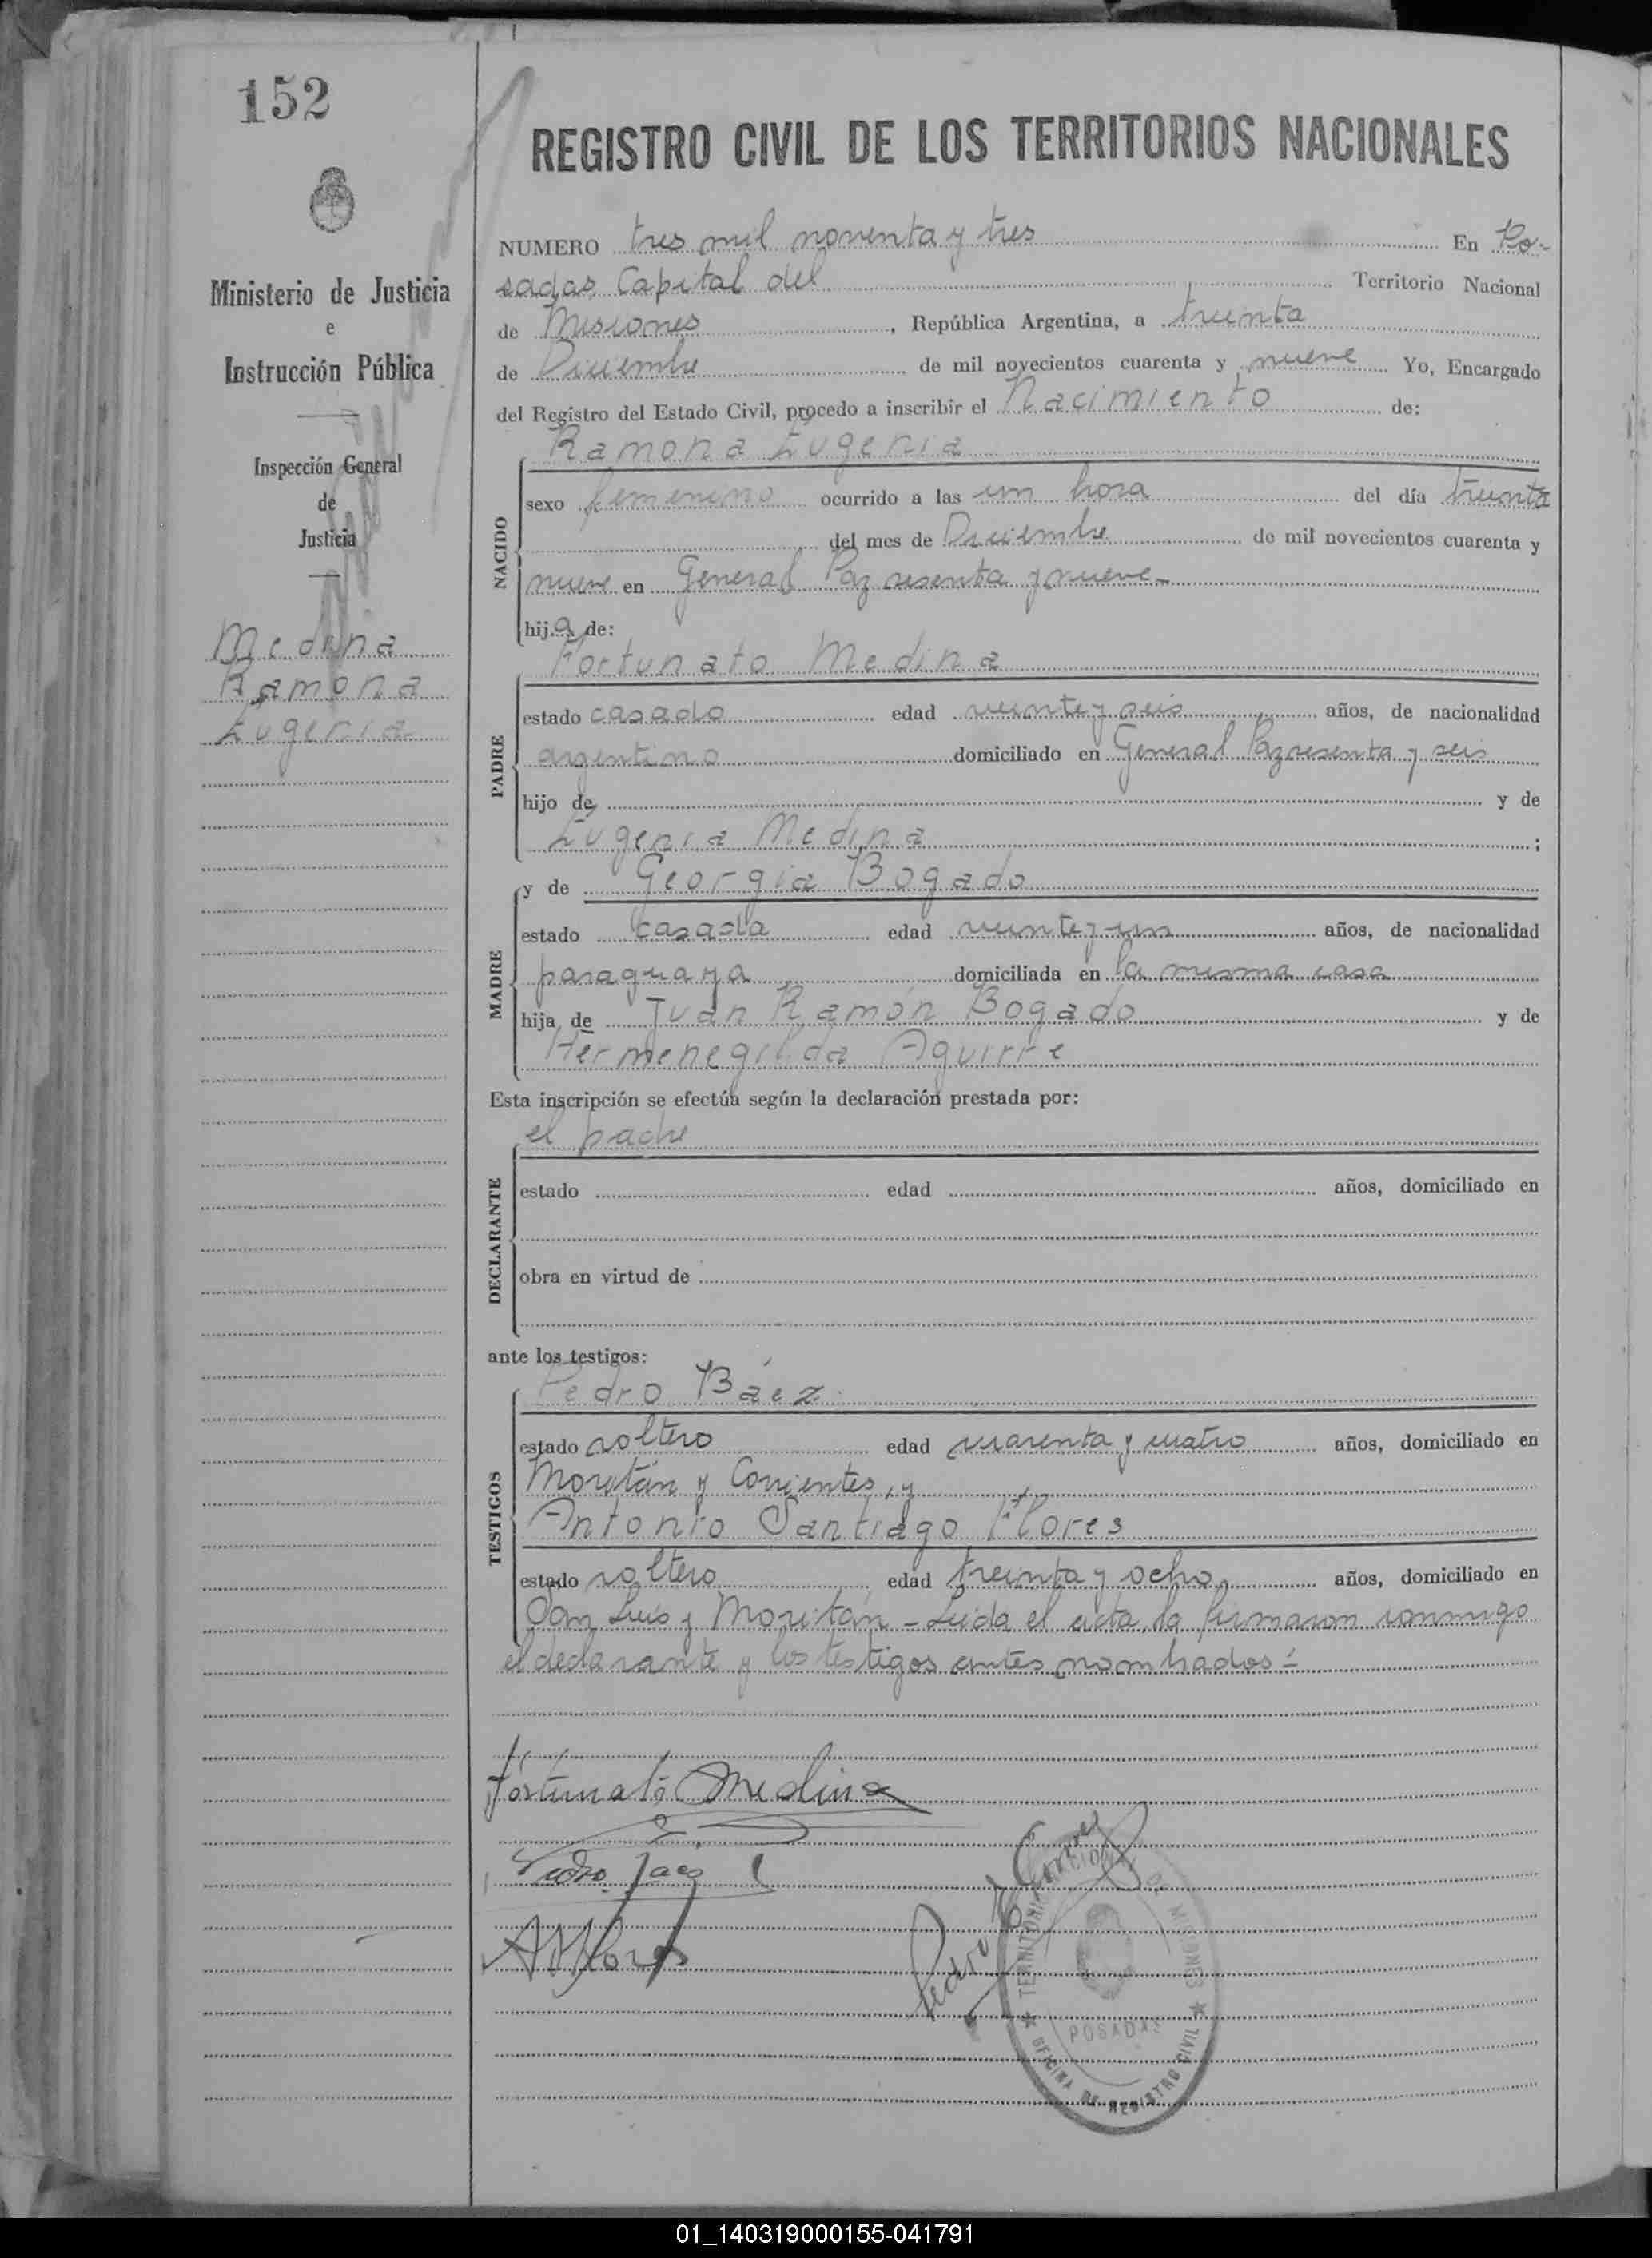 152
Ministerio de Justicia
e
Instrucción Pública
Inspección General
de
Justicia
Medina
Ramona
Eugenia
REGISTRO CIVIL DE LOS TERRITORIOS NACIONALES
NUMERO tres mil noventa y tres En Po-
sadas Capital del Territorio Nacional
de Misiones, República Argentina, a treinta
de Diciembre de mil novecientos cuarenta y nueve Yo, Encargado
del Registro del Estado Civil, procedo a inscribir el Nacimiento de:
Ramona Eugenia
NACIDO
sexo femenino ocurrido a las un hora del día treinta
del mes de Diciembre de mil novecientos cuarenta y
nueve en General Paz sesenta y nueve-
hija de:
Fortunato Medina
PADRE
estado casado edad veinte y seis años, de nacionalidad
argentino domiciliado en General Paz sesenta y seis
hijo de y de
Eugenia Medina ;
y de Georgia Bogado
MADRE
estado casada edad veinte y un años, de nacionalidad
paraguaya domiciliada en la misma casa
hija de Juan Ramón Bogado y de
Hermenegilda Aguirre
Esta inscripción se efectúa según la declaración prestada por:
el padre
DECLARANTE
estado edad años, domiciliado en
obra en virtud de
ante los testigos:
Pedro Báez
TESTIGOS
estado soltero edad cuarenta y cuatro años, domiciliado en
Moritán y Corrientes, y
Antonio Santiago Flores
estado soltero edad treinta y ocho años, domiciliado en
San Luis y Moritán - Leida el acta, la firmaron conmigo
el declarante y los testigos antes nombrados=
Fortunato Medina
Pedro Baez
ASFlores
Pedro
TERRITORIO MISIONES
POSADAS
OFICINA DE REGISTRO CIVIL
01_140319000155-041791